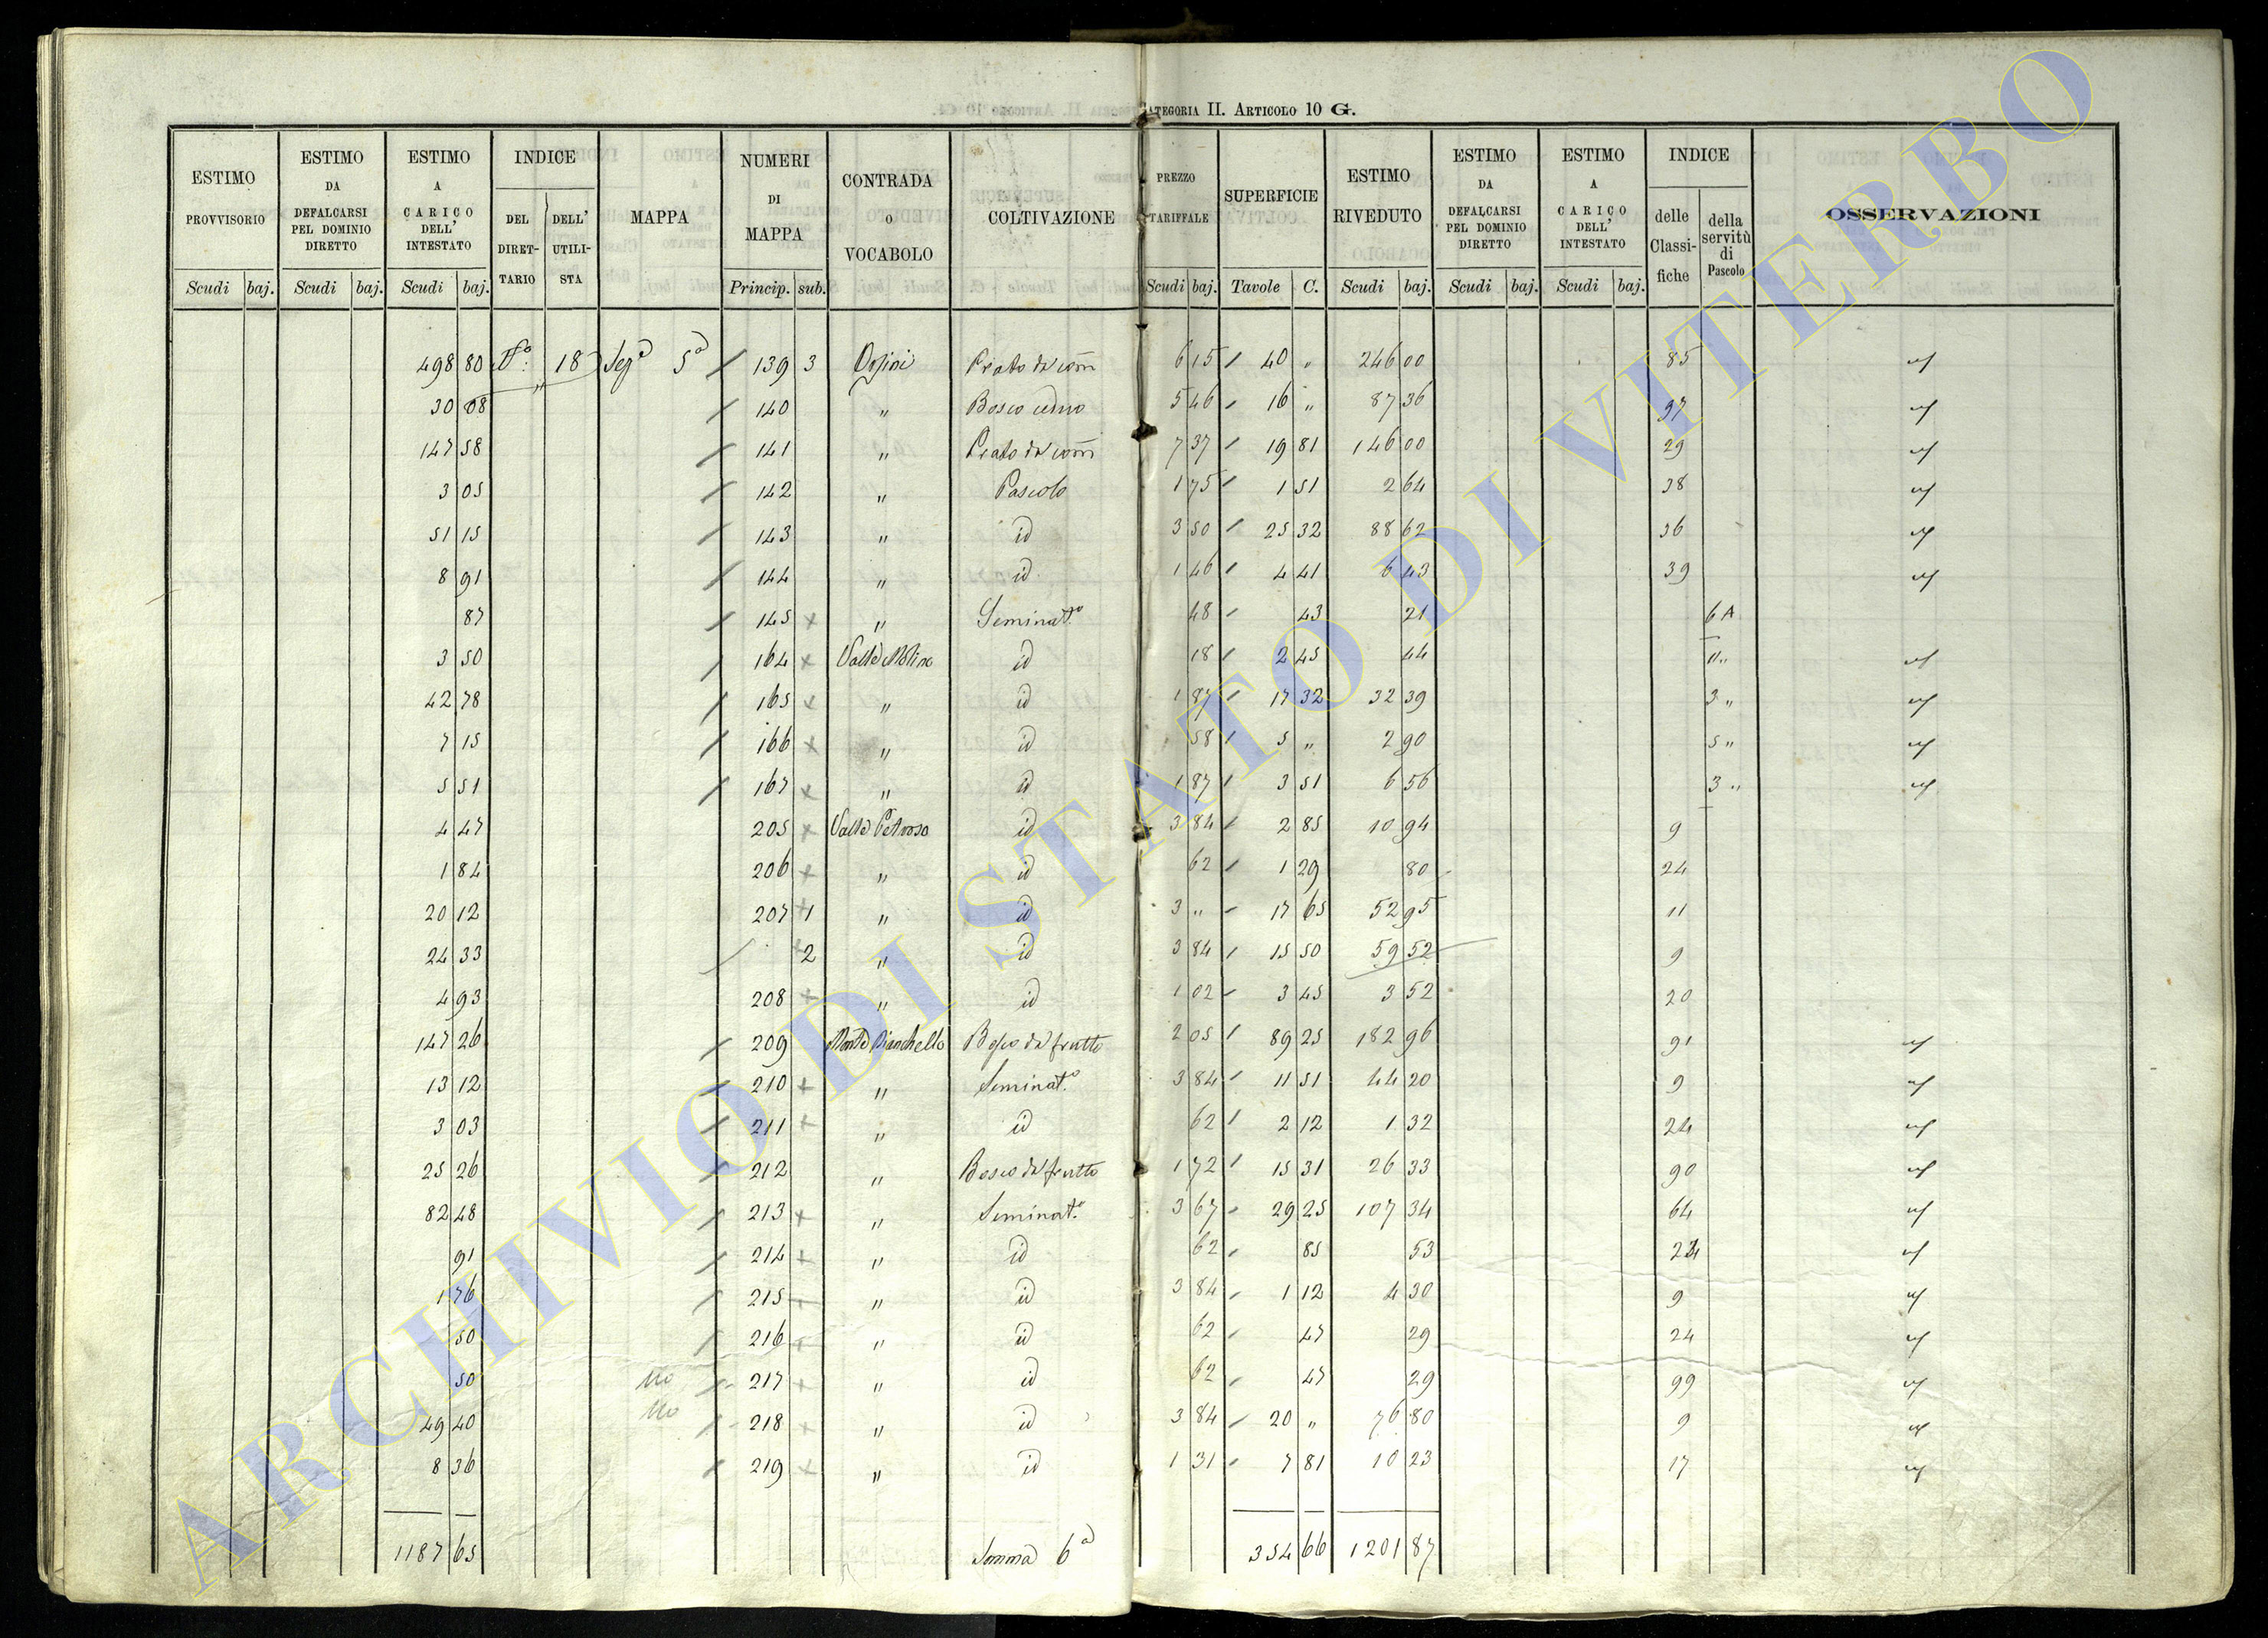 CATEGORIA II. ARTICOLO 10 G.
ESTIMO PROVVISORIO Scudi baj. ESTIMO DA DEFALCARSI PEL DOMINIO DIRETTO Scudi baj. ESTIMO A CARICO DELL' INTESTATO Scudi baj. INDICE DEL DIRETTARIO DELL' UTILISTA MAPPA NUMERI DI MAPPA Princip. sub. CONTRADA O VOCABOLO COLTIVAZIONE PREZZO TARIFFALE Scudi baj. SUPERFICIE Tavole C. ESTIMO RIVEDUTO Scudi baj. ESTIMO DA DEFALCARSI PEL DOMINIO DIRETTO Scudi baj. ESTIMO A CARICO DELL' INTESTATO Scudi baj. INDICE delle Classifiche della servitù di Pascolo OSSERVAZIONI
498 80 18 Segᵃ 5ᵃ 139 3 Orsini Prato da 6 15 40 " 246 00 85
30 08 140 " Bosco ceduo 5 46 16 " 87 36 97
147 58 141 " Prato da 7 37 19 81 146 00 29
3 05 142 " Pascolo 1 75 1 51 2 64 38
51 15 143 " id 3 50 25 32 88 62 36
8 91 144 " id 1 46 4 41 6 43 39
87 145 " Seminatº 48 43 21 6 A
3 50 164 Valle Molino id 18 2 45 44 11 "
42 78 165 " id 1 87 17 32 32 39 3 "
7 15 166 " id 58 5 " 2 90 5 "
5 51 167 " id 1 87 3 51 6 56 3 "
4 47 205 Valle Petroso id 3 84 2 85 10 94 9
1 84 206 " id 62 1 29 80 24
20 12 207 1 " id 3 " 17 65 52 95 11
24 33 2 " id 3 84 15 50 59 52 9
4 93 208 " id 1 02 3 45 3 52 20
147 26 209 Monte Bianchello Bosco da frutto 2 05 89 25 182 96 91
13 12 210 " Seminat.º 3 84 11 51 44 20 9
3 03 211 " id 62 2 12 1 32 24
25 26 212 " Bosco da frutto 1 72 15 31 26 33 90
82 48 213 " Seminat.º 3 67 29 25 107 34 64
91 214 " id 62 85 53 24
1 76 215 " id 3 84 1 12 4 30 9
50 216 " id 62 47 29 24
50 no 217 " id 62 47 29 99
49 40 no 218 " id 3 84 20 " 76 80 9
8 36 219 " id 1 31 7 81 10 23 17
1187 65 Somma 6ᵃ 354 66 1201 87
ARCHIVIO DI STATO DI VITERBO